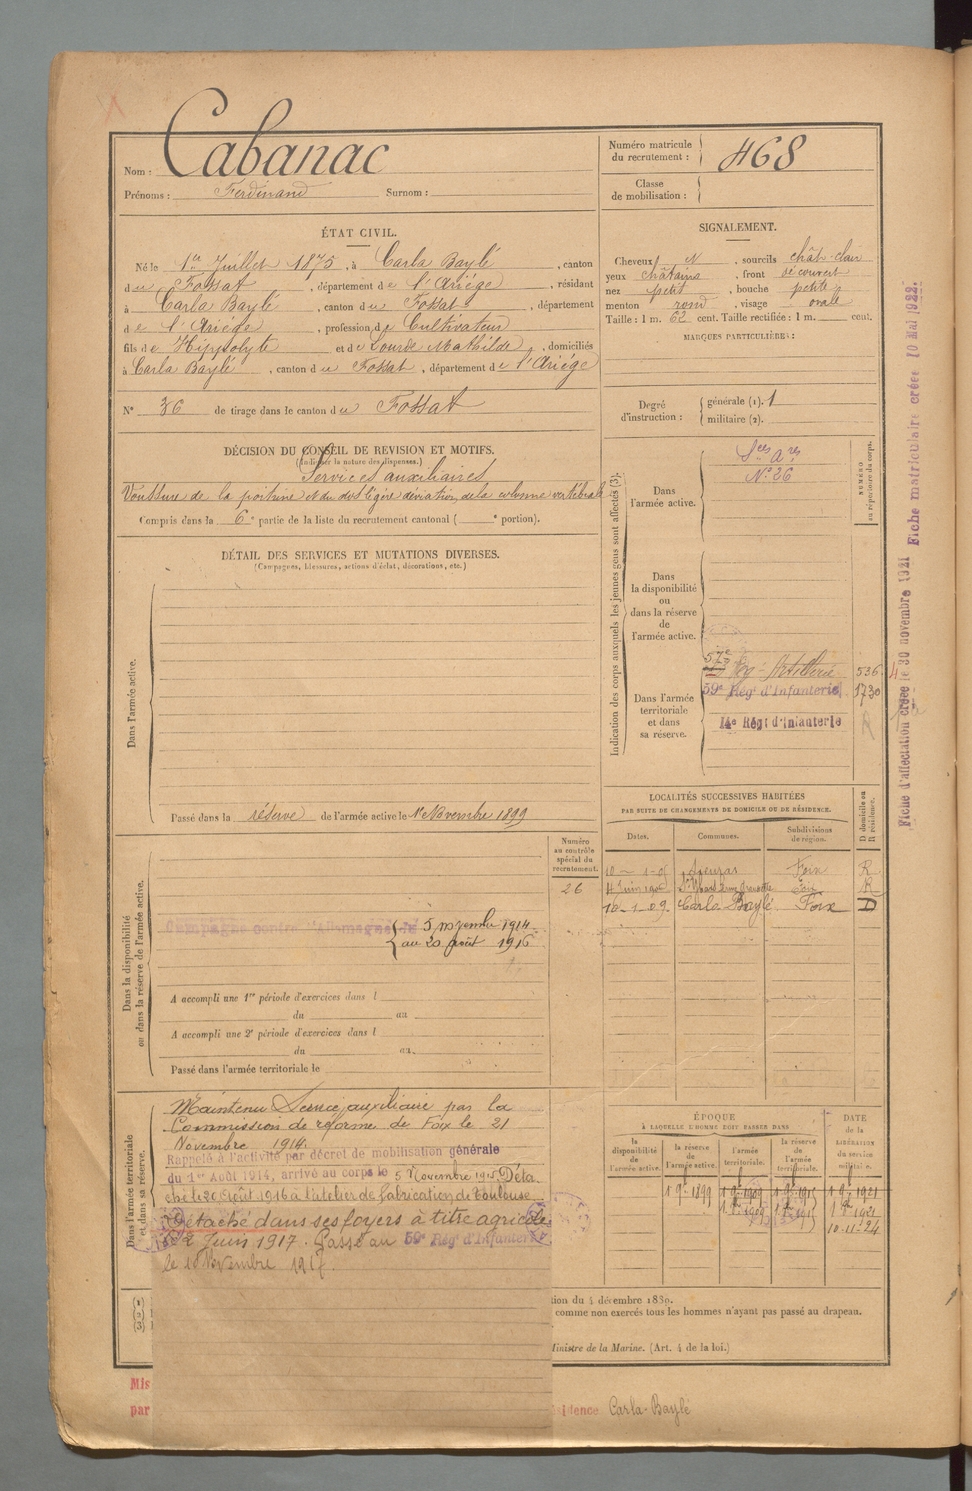 Nom : Cabanac
Prénoms : Ferdinand Surnom :
Numéro matricule du recrutement : 468
Classe de mobilisation :
ÉTAT CIVIL.
Né le 1er Juillet 1875, à Carla Baylé, canton
du Fossat, département de l'Ariége, résidant
à Carla Baylé, canton du Fossat, département
de l'Ariége, profession de Cultivateur
fils de Hippolyte et de Lourde Mathilde, domiciliés
à Carla Baylé, canton du Fossat, département de l'Ariége
N° 36 de tirage dans le canton du Fossat
SIGNALEMENT.
Cheveux N, sourcils chât-clair
yeux châtains, front découvert
nez petit, bouche petite
menton rond, visage ovale
Taille : 1 m. 62 cent. Taille rectifiée : 1 m. cent.
MARQUES PARTICULIÈRES :
Degré d'instruction : générale (1). 1
militaire (2).
DÉCISION DU CONSEIL DE REVISION ET MOTIFS.
(Indiquer la nature des dispenses.)
Services auxiliaires
Voussure de la poitrine et du dos légère déviation de la colonne vertébrale
Compris dans la 6e partie de la liste du recrutement cantonal ( e portion).
DÉTAIL DES SERVICES ET MUTATIONS DIVERSES.
(Campagnes, blessures, actions d'éclat, décorations, etc.)
Dans l'armée active.
Passé dans la réserve de l'armée active le 1er Novembre 1899
Indication des corps auxquels les jeunes gens sont affectés (3).
NUMÉRO au répertoire du corps.
Dans l'armée active.
Sces Ares
N° 26
Dans la disponibilité ou dans la réserve de l'armée active.
Dans l'armée territoriale et dans sa réserve.
57e Rég. Artillerie 536
59e Régt d'Infanterie 1730
14e Régt d'Infanterie
Fiche d'affectation créée le 30 novembre 1921
Fiche matriculaire créée 10 Mai 1922.
LOCALITÉS SUCCESSIVES HABITÉES
PAR SUITE DE CHANGEMENTS DE DOMICILE OU DE RÉSIDENCE.
Dates. Communes. Subdivisions de région. D domicile ou R résidence.
Foix R
4 Juin 1906 Foix R
16-1-09. Carla Baylé Foix D
Numéro au contrôle spécial du recrutement.
26
Dans la disponibilité ou dans la réserve de l'armée active.
Campagne contre l'Allemagne du 5 novembre 1914
au 20 août 1916
A accompli une 1re période d'exercices dans l
du au
A accompli une 2e période d'exercices dans l
du au
Passé dans l'armée territoriale le
Dans l'armée territoriale et dans sa réserve.
Maintenu Service auxiliaire par la
Commission de réforme de Foix le 21
Novembre 1914.
Rappelé à l'activité par décret de mobilisation générale
du 1er Août 1914, arrivé au corps le 5 Novembre 1915. Déta
ché le 20 Août 1916 à l'atelier de fabrication de Toulouse
Détaché dans ses foyers à titre agricole
le 2 Juin 1917. Passé au 59e Régt d'Infanterie
le 10 Novembre 1917.
ÉPOQUE
À LAQUELLE L'HOMME DOIT PASSER DANS
DATE de la LIBÉRATION du service militaire.
la disponibilité de l'armée active. la réserve de l'armée active. l'armée territoriale. la réserve de l'armée territoriale.
1 9bre 1899 1 9bre 1909 1 9bre 1915 1 9bre 1921
10-11-24
tion du 4 décembre 1889.
comme non exercés tous les hommes n'ayant pas passé au drapeau.
Ministre de la Marine. (Art. 4 de la loi.)
Mis
par
sidence Carla-Baylé